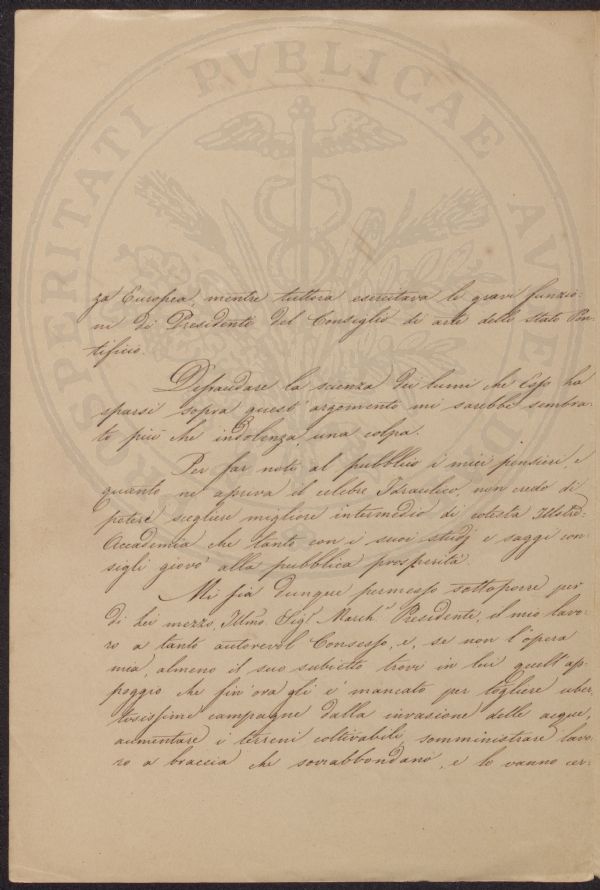 PROSPERITATI PVBLICAE AVGENDAE
za Europea, mentre tuttora esercitava le gravi funzio-
ni di Presidente del Consiglio di arte dello Stato Pon-
tificio.
Defraudare la scienza dei lumi che Esso ha
sparsi sopra quest'argomento mi sarebbe sembra-
to più che indolenza, una colpa.
Per far noti al pubblico i miei pensieri, e
quanto ne apriva il celebre Idraulico, non credo di
potere scegliere migliore intermedio di cotesta Illstre
Accademia che tanto con i suoi studj e saggi con-
sigli giovò alla pubblica prosperità.
Mi sia dunque permesso sottoporre per
di Lei mezzo, Illmo. Sigr. March. Presidente, il mio lavo-
ro a tanto autorevol Consesso, e, se non l'opera
mia, almeno il suo subietto trovi in lui quell'ap-
poggio che fin'ora gli è mancato per togliere uber-
tosissime campagne dalla invasione delle acque,
aumentare i terreni coltivabili, somministrare lavo-
ro a braccia che sovrabbondano, e lo vanno cer-